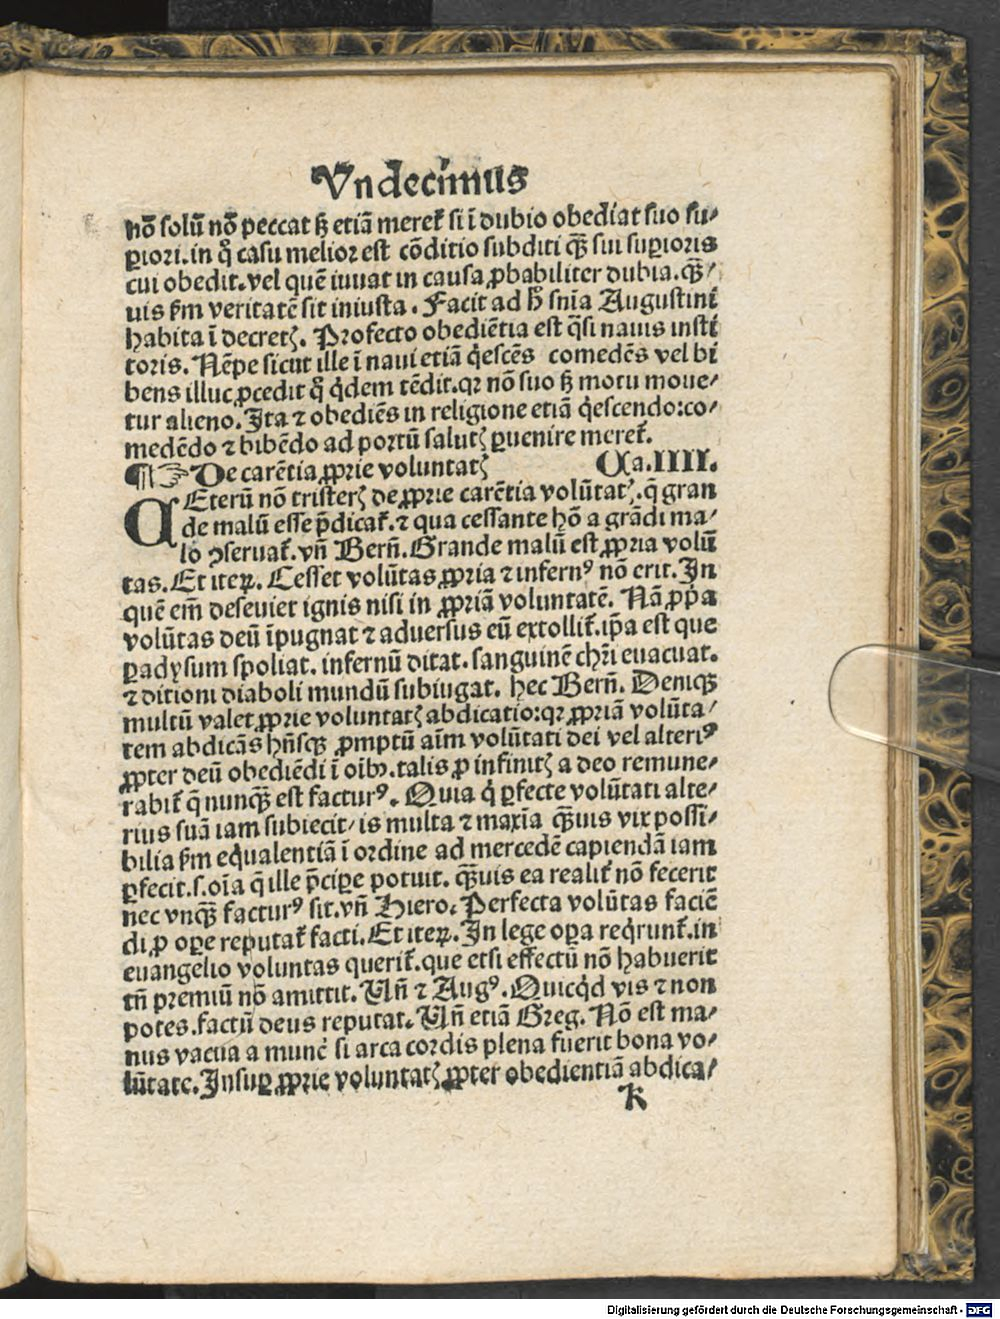 Vndecimus
nō solū nō peccat ꝫ etiā meret̄ si ī dubio obediat suo su⸗
ꝑiori. in q̊ casu melior est cōditio subditi qꝫ̄ sui suꝑioris
cui obedit. vel quē iuuat in causa ꝓbabiliter dubia. qꝫ̄⸗
uis ẜm veritatē sit iniusta. Facit ad h̄ snīa Augustini
habita ī decretꝭ. Profecto obediētia est q̄si nauis insti
toris. Nēpe sicut ille ī naui etiā q̇escēs comedēs vel bi
bens illuc ꝓcedit q̊ q̇dem tēdit. qꝛ nō suo ꝫ motu moue⸗
tur alieno. Ita ⁊ obediēs in religione etiā q̇escendo: co⸗
medēdo ⁊ bibēdo ad portū salutꝭ ꝑuenire meret̄.
¶☞ De carētia ꝓprie voluntatꝭ Ca. IIII.
CEterū nō tristerꝭ de ꝓprie carētia volūtatꝭ. q̄ gran
de malū esse p̄dicat̄. ⁊ qua cessante hō a grādi ma⸗
lo ꝯseruat̄. vn̄ Bern̄. Grande malū est ꝓpria volū
tas. Et iteꝝ. Cesset volūtas ꝓpria ⁊ infernꝰ nō erit. In
quē em̄ deseuiet ignis nisi in ꝓpriā voluntatē. Nā ꝓpa
volūtas deū īpugnat ⁊ aduersus eū extollit̄. ip̄a est que
ꝑadysum spoliat. infernū ditat. sanguinē chr̄i euacuat.
⁊ ditioni diaboli mundū subiugat. hec Bern̄. Deniqꝫ
multū valet ꝓprie voluntatꝭ abdicatio: qꝛ ꝓpriā volūta⸗
tem abdicās hn̄sqꝫ ꝓmptū aīm volūtati dei vel alteriꝰ
ꝓpter deū obediēdi ī oībꝰ. talis ꝓ infinitꝭ a deo remune⸗
rabit̄ q̄ nunqꝫ̄ est facturꝰ. Quia q̇ ꝑfecte volūtati alte⸗
rius suā iam subiecit/ is multa ⁊ maxīa qꝫ̄uis vix possi⸗
bilia ẜm eq̇ualentiā ī ordine ad mercedē capiendā iam
ꝑfecit. s. oīa q̄ ille p̄ciꝑe potuit. qꝫ̄uis ea realit̄ nō fecerit
nec vnqꝫ̄ facturꝰ sit. vn̄ Hiero. Perfecta volūtas faciē
di ꝓ oꝑe reputat̄ facti. Et iteꝝ. In lege oꝑa req̇runt̄. in
euangelio voluntas querit̄. que etsi effectū nō habuerit
tn̄ premiū nō amittit. Vn̄ ⁊ Augꝰ. Quicq̇d vis ⁊ non
potes. factū deus reputat. Vn̄ etiā Greg. Nō est ma⸗
nus vacua a mun̄e si arca cordis plena fuerit bona vo⸗
lūtate. Insuꝑ ꝓprie voluntatꝭ ꝓpter obedientiā abdica⸗
k
Digitalisierung gefördert durch die Deutsche Forschungsgemeinschaft - DFG